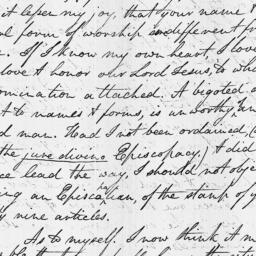 it lessen my joy, that your name &
form of worship indifferent fr
If I know my own heart, I love
love & honor our Lord Jesus, to wh
omination attached. A bigoted a
t to names & forms, is unworthy an
d man. Had I not been ordained, (
the jure divino Episcopacy.) I did
ce lead the way, I should not obje
ing an Episcopalian, of the stamp of y
ty nine articles.
As to myself. I now think it m